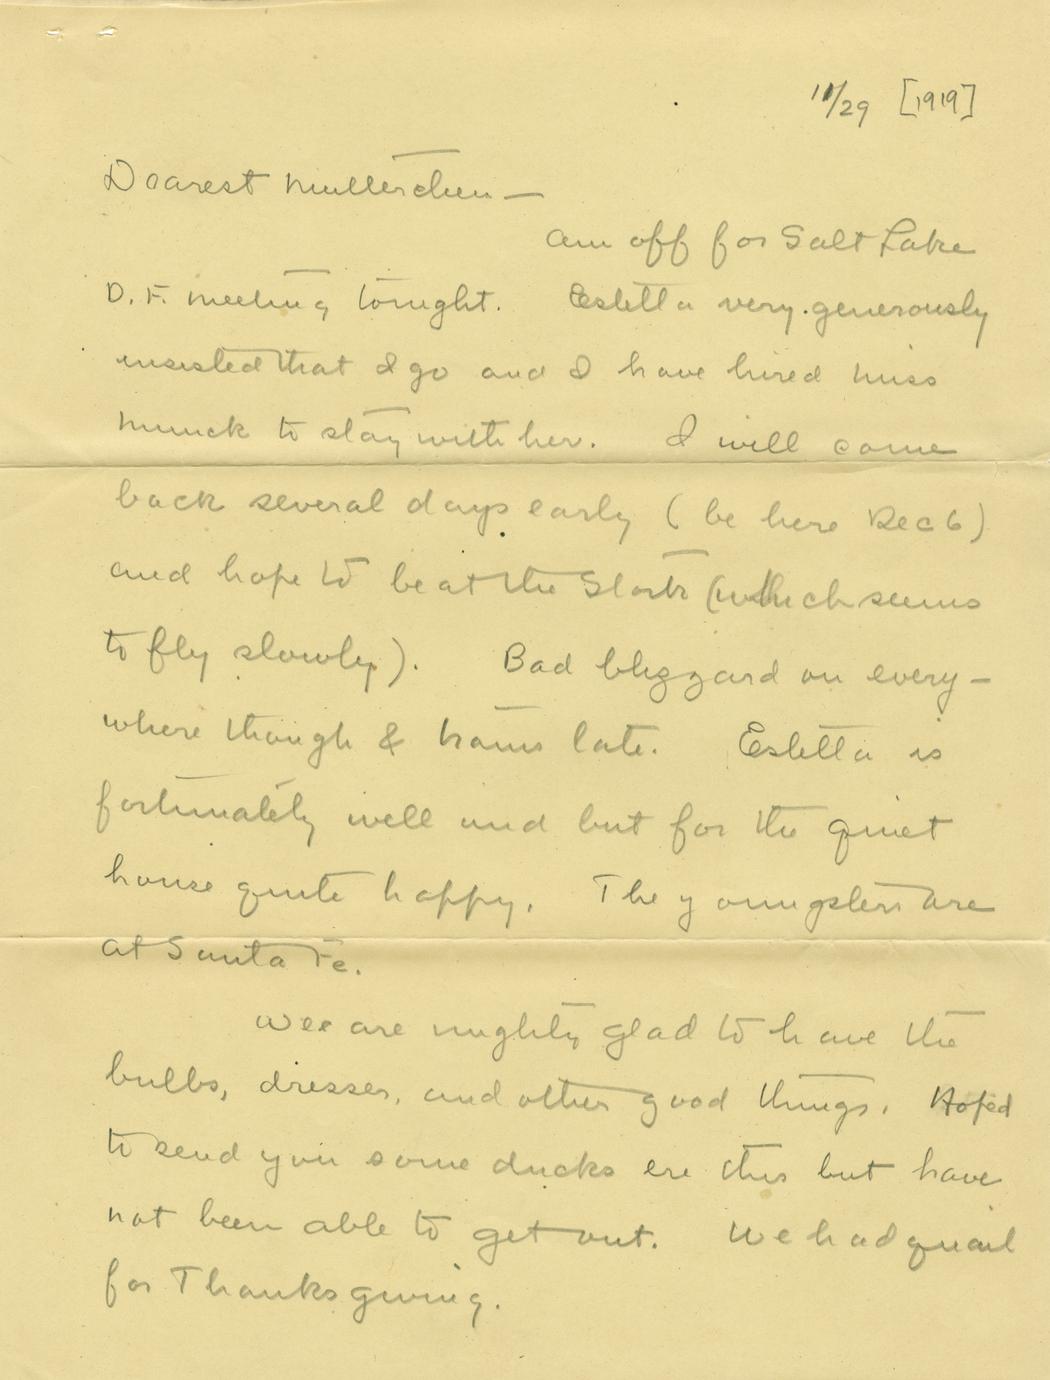 11/29 [1919]
Dearest Mutterchen —
am off for Salt Lake
D.F. meeting tonight. Estella very generously
insisted that I go and I have hired Miss
Munck to stay with her. I will come
back several days early (be here Dec 6)
and hope to beat the Stork (which seems
to fly slowly). Bad blizzard on every-
where though & trains late. Estella is
fortunately well and but for the quiet
house quite happy. The youngsters are
at Santa Fe.
Wee are mighty glad to have the
bulbs, dresser, and other good things. Hoped
to send you some ducks ere this but have
not been able to get out. We had quail
for Thanksgiving.